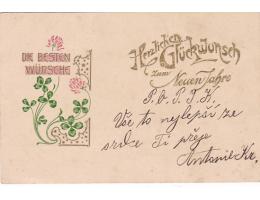 DIE BESTEN
WÜNSCHE
Herzlichen
Glückwunsch
zum
Neuen Jahre
Vše to nejlepší ze
srdce Ti přeje
Antonie